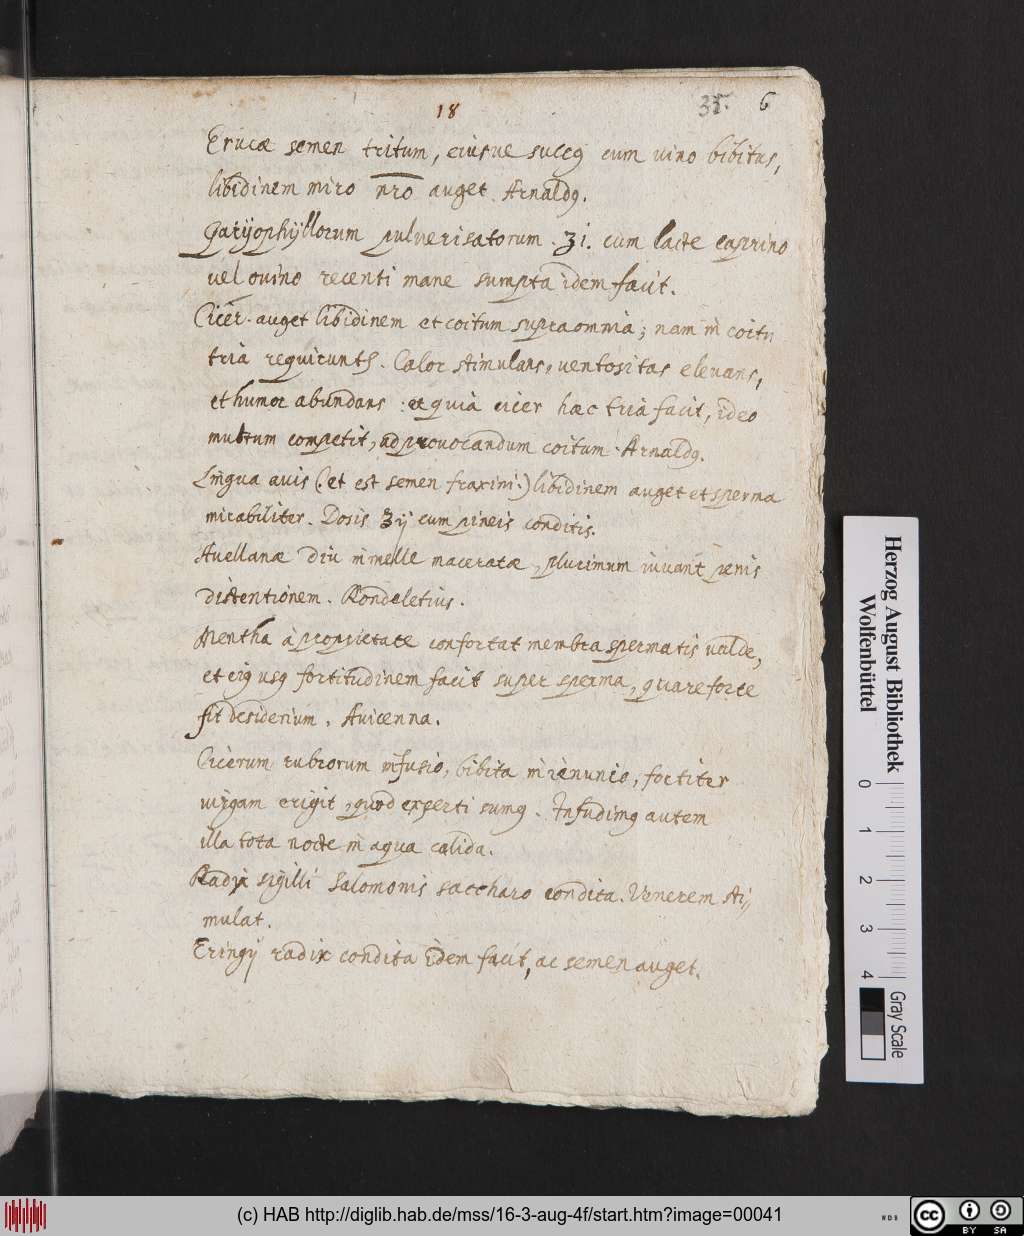 18 35. 6
Erucæ semen tritum, eiusve succꝯ cum vino bibitus,
libidinem miro nr̄o auget. Arnaldꝯ.
Garyophyllorum pulverisatorum. ʒi. cum lacte caprino
vel ovino recenti mane sumpta idem facit.
Cicer. auget libidinem et coitum supra omnia; nam in coitu
tria requirunt. Calor stimulans, ventositas elevans,
et humor abundans: et quia cicer hæc tria facit, ideo
multum competit, ad provocandum coitum. Arnaldꝯ.
Lingua avis (. et est semen fraxini.) libidinem auget et sperma
mirabiliter. Dosis ʒij cum pineis conditis.
Avellanæ diu in melle maceratæ, plurimum iuvant penis
distentionem. Rondeletius.
Mentha à proprietate confortat membra spermatis valde,
et eiꝯ usꝯ fortitudinem facit super sperma, quare forte
fit desiderium. Avicenna.
Cicerum rubrorum infusio, bibita in ieiunio, fortiter
virgam erigit, quod experti sumꝯ. Infudimꝯ autem
illa tota nocte in aqua calida.
Radix sigilli Salomonis saccharo condita. Venerem sti//
mulat.
Eringij radix condita idem facit, ac semen auget.
Herzog August Bibliothek
Wolfenbüttel
0 1 2 3 4
Gray Scale
(c) HAB http://diglib.hab.de/mss/16-3-aug-4f/start.htm?image=00041
WDB
cc BY SA